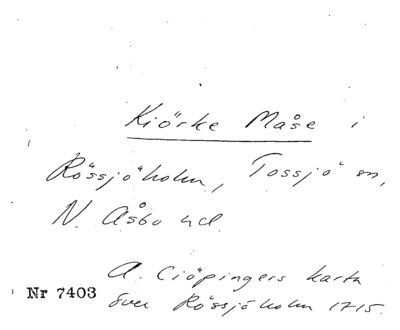 Kiörke Måse i
Rössjöholm, Tossjö sn,
N. Åsbo hd.
A. Ciöpingers karta
Nr 7403
över Rössjöholm 1715.